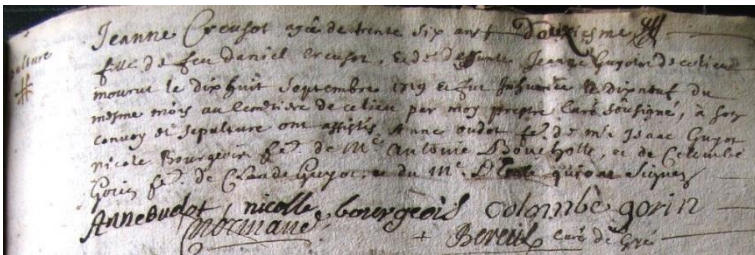 sepulture
Jeanne Creusot agée de trente six ans Douziesme
fille de feu Daniel Creusot, et de deffunte Jeanne Guyot de ce lieu
mourut le dix huit Septembre 1719 et fut Inhumée le dix neuf du
mesme mois au Cemetiere de ce lieu par moy prestre Curé soussigné, à son
convoy et sepulture ont assistés Anne oudot fe. de me Isaac Guyot
nicole Bourgeois fe. de Me. Antoine Bouchotte, et de Colombe
Gorin fe. de Claude Guyot, et du Me. D'Ecole qui ont Signez
Anne oudot nicolle bourgeois colombe gorin
Normand Bereuil curé de